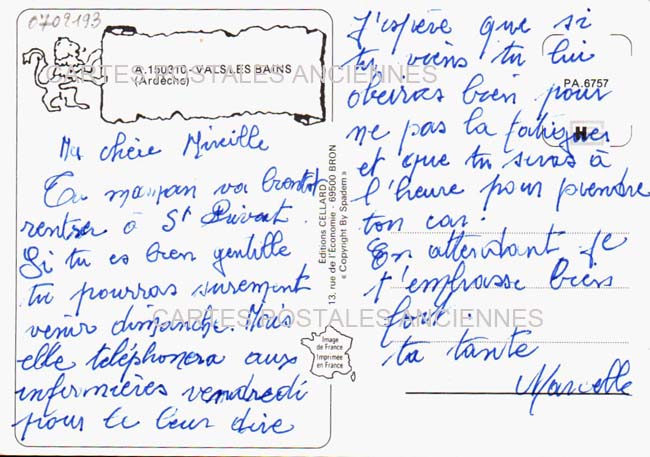 0709193
A.150310 - VALS LES BAINS
(Ardèche)
CARTES POSTALES ANCIENNES
Ma chère Mireille
Ta maman va bientot
rentrer à St Privat.
Si tu es bien gentille
tu pourras surement
venir dimanche. Mais
elle téléphonera aux
infirmières vendredi
pour le leur dire
CARTES POSTALES ANCIENNES
Editions CELLARD
13, rue de l'Economie - 69500 BRON
« Copyright By Spadem »
Image
de France
Imprimée
en France
PA.6757
H
J'espère que si
tu viens tu lui
obeiras bien pour
ne pas la fatiguer
et que tu seras à
l'heure pour prendre
ton car.
En attendant je
t'embrasse bien
fort.
ta tante
Marcelle